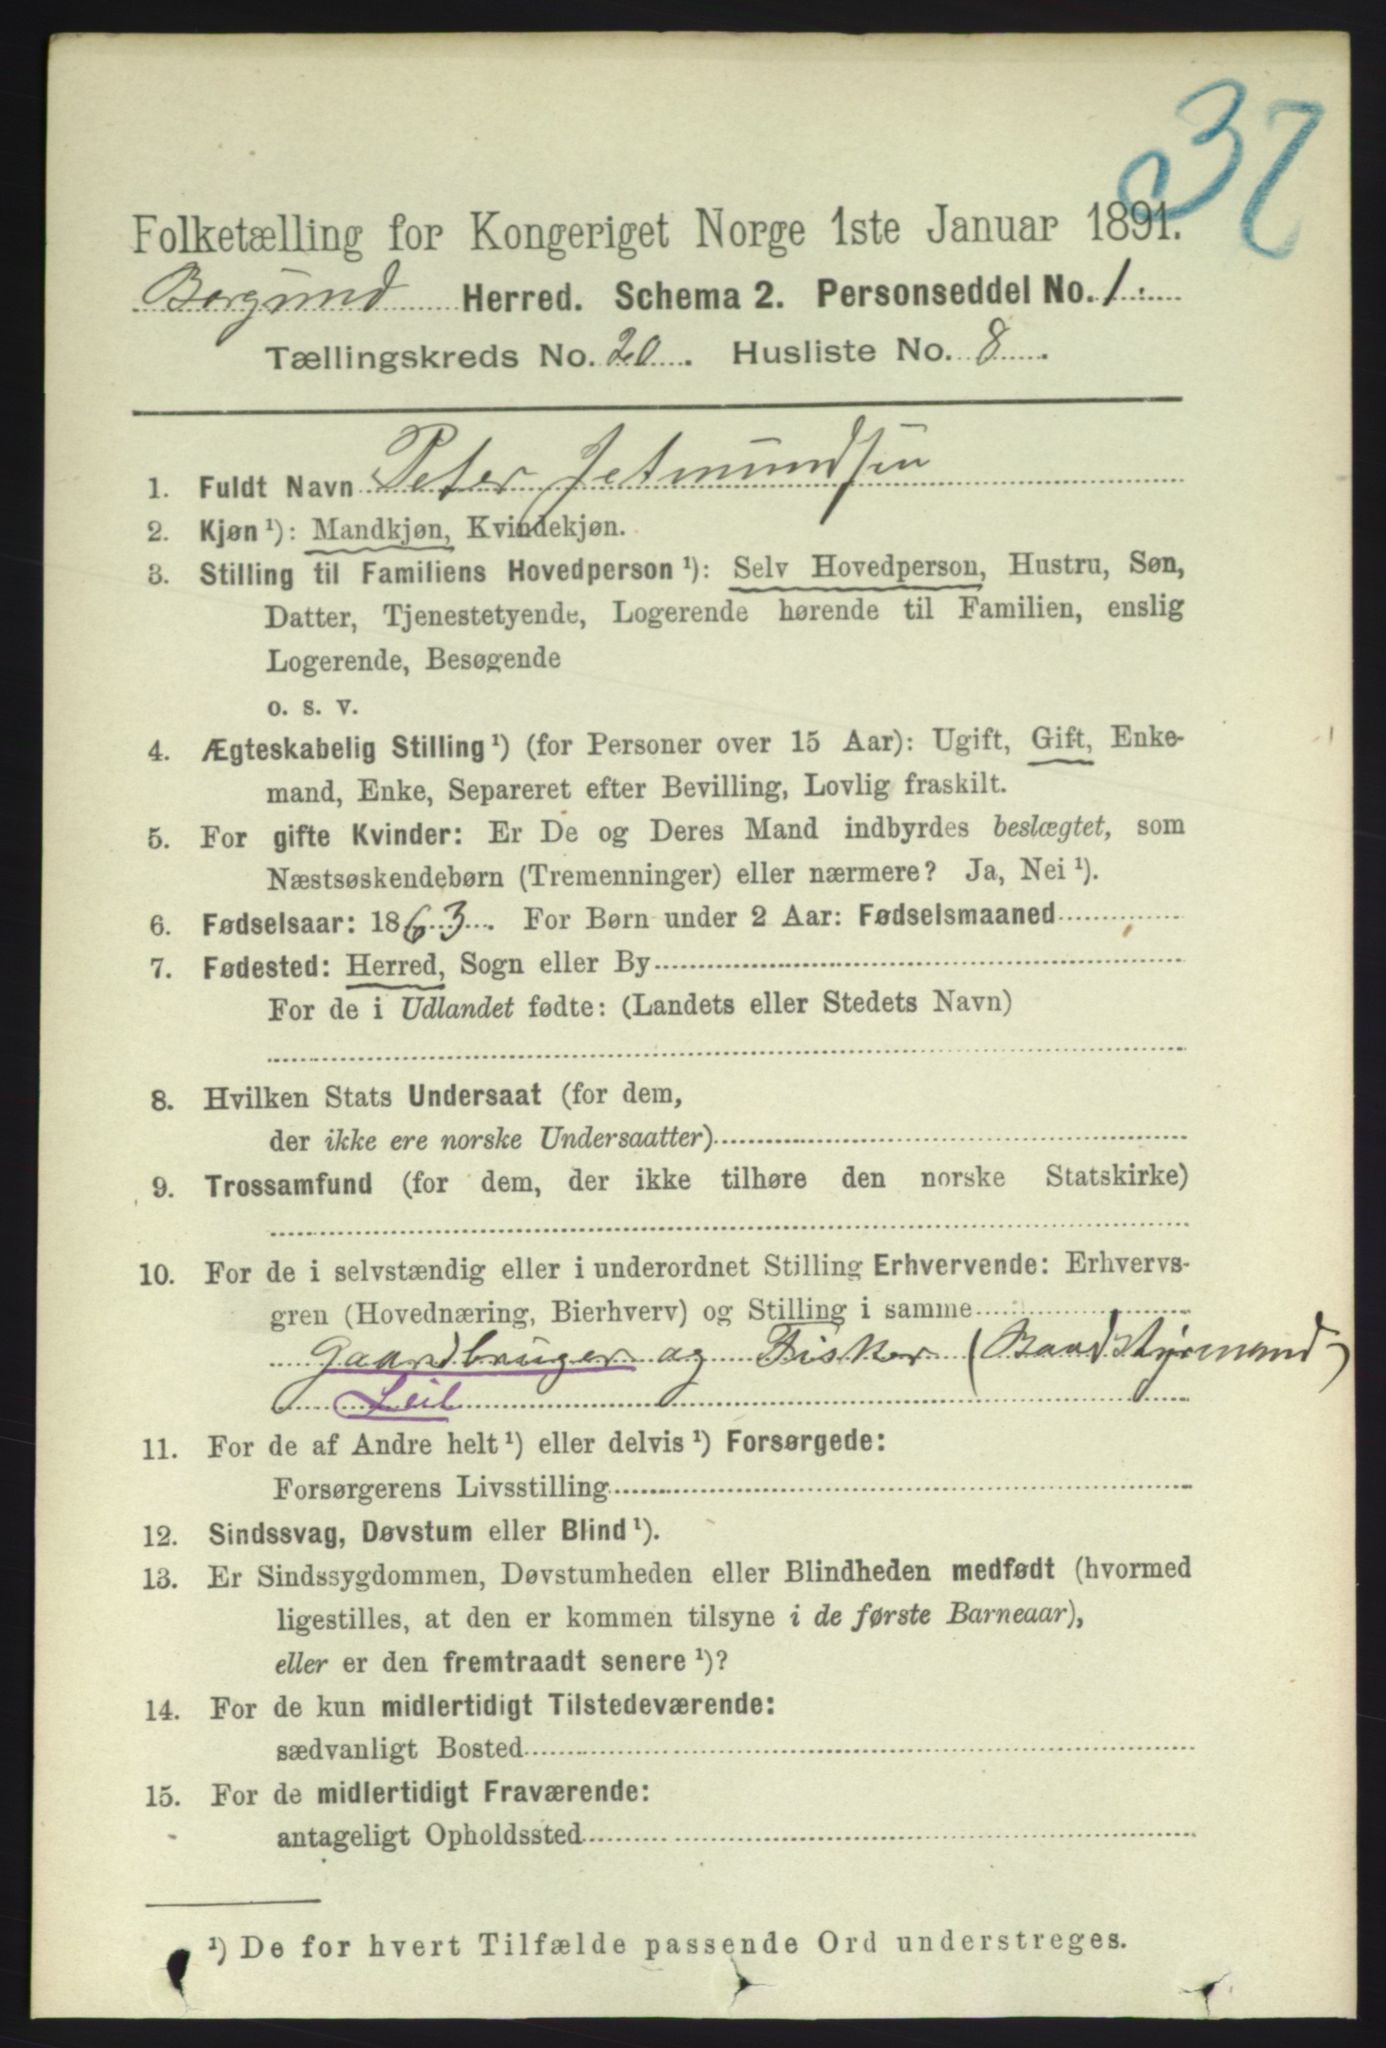 37
Folketælling for Kongeriget Norge 1ste Januar 1891.
Borgund Herred. Schema 2. Personseddel No. 1.
Tællingskreds No. 20. Husliste No. 8.
1. Fuldt Navn Peter Jetmundsen
2. Kjøn ¹): Mandkjøn, Kvindekjøn.
3. Stilling til Familiens Hovedperson ¹): Selv Hovedperson, Hustru, Søn,
Datter, Tjenestetyende, Logerende hørende til Familien, enslig
Logerende, Besøgende
o. s. v.
4. Ægteskabelig Stilling ¹) (for Personer over 15 Aar): Ugift, Gift, Enke-
mand, Enke, Separeret efter Bevilling, Lovlig fraskilt.
5. For gifte Kvinder: Er De og Deres Mand indbyrdes beslægtet, som
Næstsøskendebørn (Tremenninger) eller nærmere? Ja, Nei ¹).
6. Fødselsaar: 1863. For Børn under 2 Aar: Fødselsmaaned
7. Fødested: Herred, Sogn eller By
For de i Udlandet fødte: (Landets eller Stedets Navn)
8. Hvilken Stats Undersaat (for dem,
der ikke ere norske Undersaatter)
9. Trossamfund (for dem, der ikke tilhøre den norske Statskirke)
10. For de i selvstændig eller i underordnet Stilling Erhvervende: Erhvervs-
gren (Hovednæring, Bierhverv) og Stilling i samme
Gaardbruger og Fisker (Baadstyrmand)
Leil
11. For de af Andre helt ¹) eller delvis ¹) Forsørgede:
Forsørgerens Livsstilling
12. Sindssvag, Døvstum eller Blind ¹).
13. Er Sindssygdommen, Døvstumheden eller Blindheden medfødt (hvormed
ligestilles, at den er kommen tilsyne i de første Barneaar),
eller er den fremtraadt senere ¹)?
14. For de kun midlertidigt Tilstedeværende:
sædvanligt Bosted
15. For de midlertidigt Fraværende:
antageligt Opholdssted
¹) De for hvert Tilfælde passende Ord understreges.